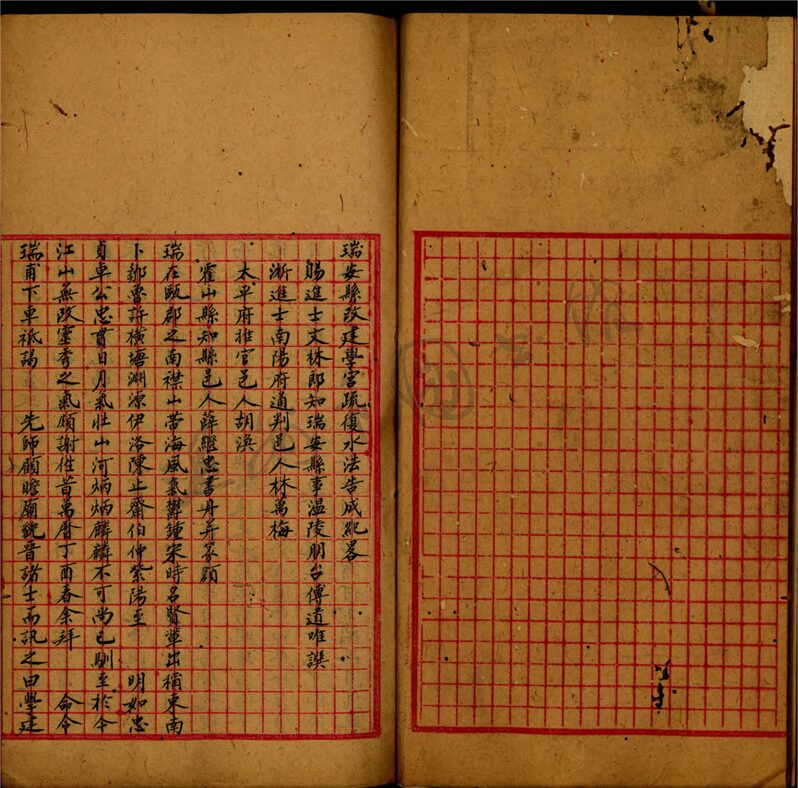 瑞安縣改建學宮疏復水法告成紀畧
賜進士文林郎知瑞安縣事溫陵朋台傅道唯譔
浙進士南陽府通判邑人林萬梅
太平府推官邑人胡渙
霍山縣知縣邑人薛繼忠書丹并篆額
瑞在甌郡之南襟山帶海風氣欝鍾宋時名賢輩出稱東南
卜鄒魯許橫塘淵源伊洛陳止齋伯仲紫陽至 明如忠
貞卓公忠貫日月氣壯山河炳炳麟麟不可尚已馴至於今
江山無改靈秀之氣頋謝徃昔萬曆丁酉春余拜 命令
瑞甫下車祗謁 先師頋瞻廟貌晋諸士而訊之曰學建